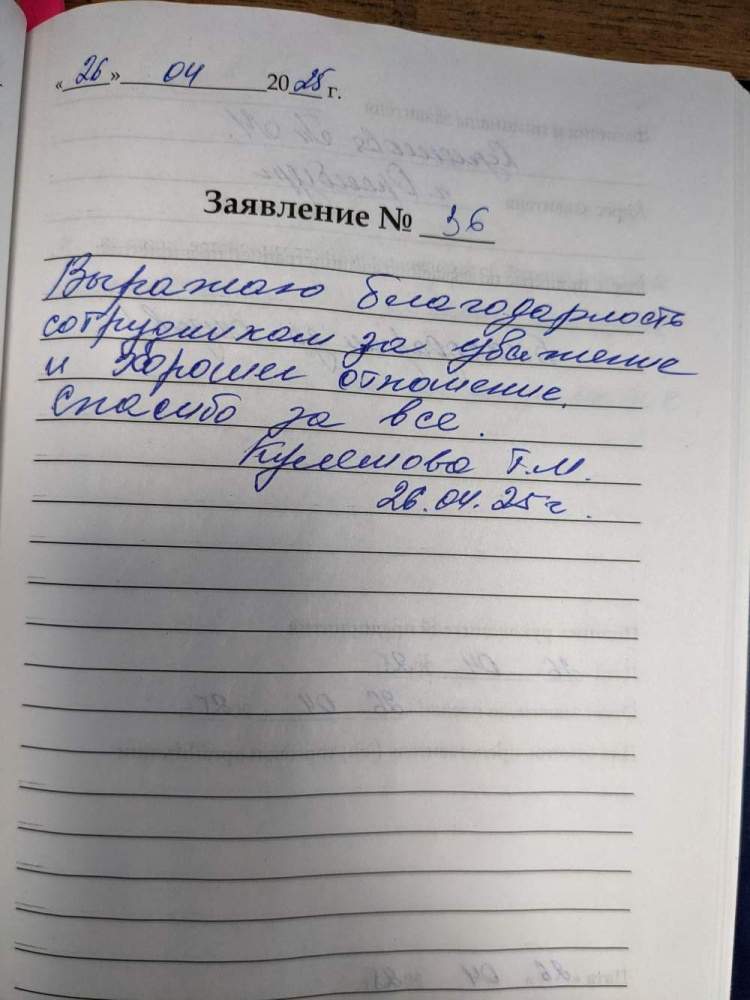 «26» 04 2025 г.
Заявление № 36
Выражаю благодарность
сотрудникам за уважение
и хорошее отношение.
Спасибо за все.
Кулешова Т.М.
26.04.25г.